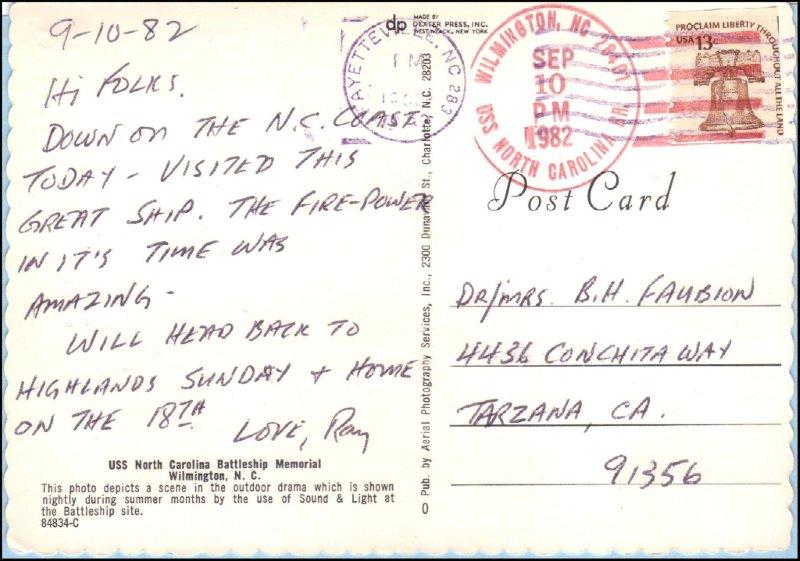 9-10-82
Hi FOLKS.
DOWN ON THE N.C. COAST
TODAY - VISITED THIS
GREAT SHIP. THE FIRE-POWER
IN IT'S TIME WAS
AMAZING -
WILL HEAD BACK TO
HIGHLANDS SUNDAY + HOME
ON THE 18TH
LOVE, Ray
USS North Carolina Battleship Memorial
Wilmington, N. C.
This photo depicts a scene in the outdoor drama which is shown
nightly during summer months by the use of Sound & Light at
the Battleship site.
84834-C
dp MADE BY
DEXTER PRESS, INC.
WEST NYACK, NEW YORK
Pub. by Aerial Photography Services, Inc., 2300 Dunavant St., Charlotte, N.C. 28203
FAYETTEVILLE, NC 283
PM
WILMINGTON, NC 2840
SEP
10
PM
1982
USS NORTH CAROLINA BR.
PROCLAIM LIBERTY THROUGHOUT ALL THE LAND
USA 13c
Post Card
DR/MRS. B.H. FAUBION
4436 CONCHITA WAY
TARZANA, CA.
91356